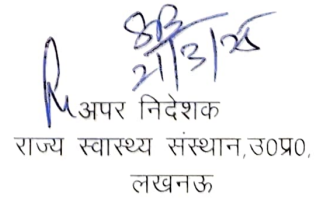 21/3/25
अपर निदेशक
राज्य स्वास्थ्य संस्थान,उ०प्र०,
लखनऊ